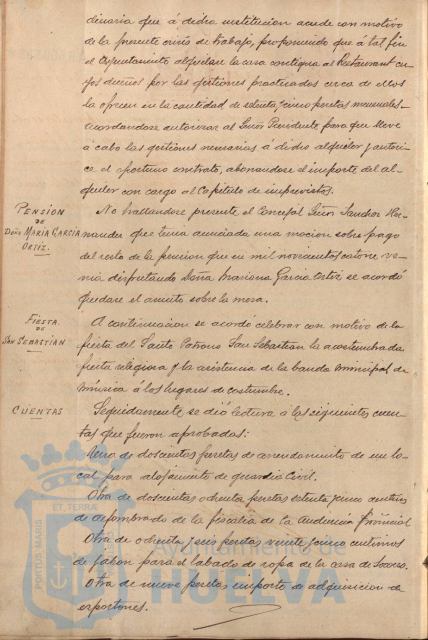 dinaria que á dicha institucion acude con motivo
de la presente crisis de trabajo, proponiendo que á tal fin
el Ayuntamiento alquilara la casa contigua al Restaurant cu-
yos dueños por las gestiones practicadas cerca de ellos
la ofrecen en la cantidad de setenta y cinco pesetas mensuales.
Acordandose autorizar al Señor Presidente para que lleve
á cabo las gestiones necesarias á dicho alquiler y autori-
ce el oportuno contrato, abonandose el importe del al-
quiler con cargo al Capitulo de imprevistos.
PENSION
DE
DOÑA MARIA GARCIA
ORTIZ.
No hallandose presente el Concejal Señor Sanchez Her-
nandez que tenia anunciada una mocion sobre pago
del resto de la pension que en mil novecientos catorce ve-
nia disfrutando Doña Mariana Garcia Ortiz se acordó
quedara el asunto sobre la mesa.
FIESTA
DE
SAN SEBASTIAN
A continuacion se acordó celebrar con motivo de la
fiesta del Santo Patrono San Sebastian la acostumbrada
fiesta religiosa y la asistencia de la banda municipal de
música á los lugares de costumbre.
CUENTAS
Seguidamente se dió lectura á las siguientes cuen-
tas que fueron aprobadas:
Una de doscientas pesetas de arrendamiento de un lo-
cal para alojamiento de guardia Civil.
Otra de doscientas ochenta pesetas setenta y cinco centimos
de alfombrado de la fiscalia de la Audiencia Provincial
Otra de ochenta y seis pesetas veinte y cinco centimos
de jabon para el labado de ropa de la casa de Socorro.
Otra de nueve pesetas importe de adquisicion de
esportones.
PORTUS MARIS ET TERRAE
Ayuntamiento de
HUELVA